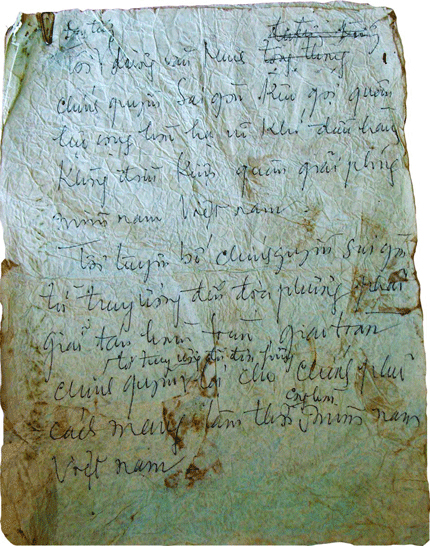 Đại tướng
Tôi dương văn Minh tổng thống
chính quyền Sài gòn kêu gọi quân
lực cộng hòa hạ vũ khí đầu hàng
không điều kiện quân giải phóng
miền nam Việt nam.
Tôi tuyên bố chính quyền Sài gòn
từ trung ương đến địa phương phải
giải tán hoàn toàn giao toàn
từ trung ương đến địa phương
chính quyền lại cho chính phủ
Cộng hòa
cách mạng lâm thời miền nam
Việt nam